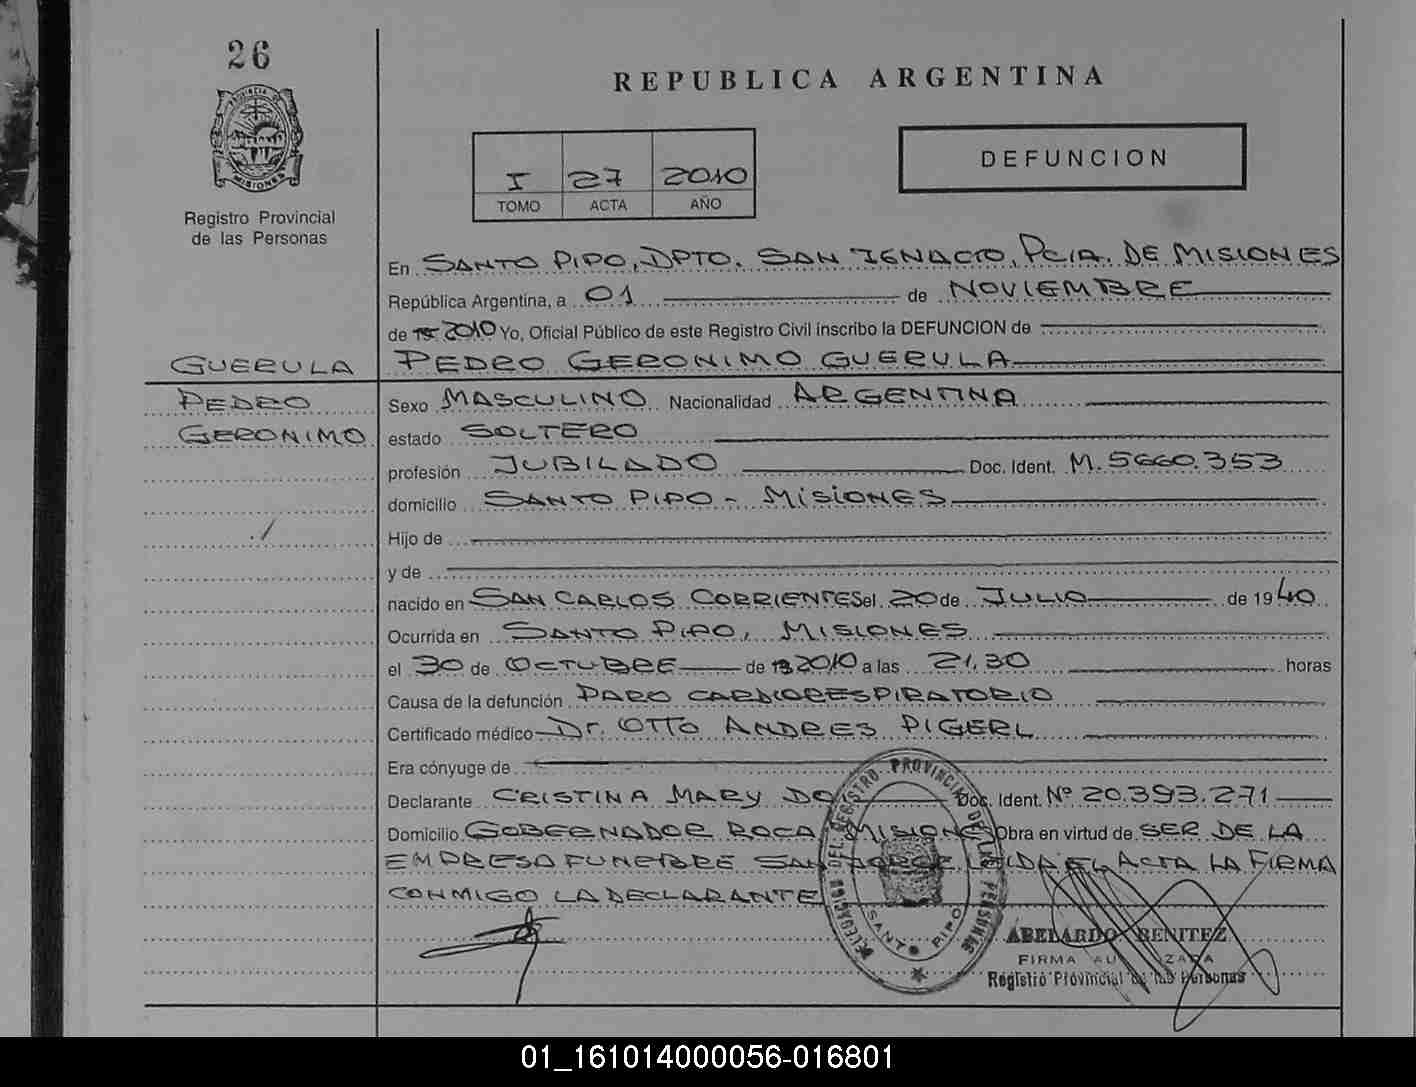 26
REPUBLICA ARGENTINA
PROVINCIA DE
MISIONES
DEFUNCION
I 27 2010
TOMO ACTA AÑO
Registro Provincial
de las Personas
En SANTO PIPO, DPTO. SAN IGNACIO, PCIA. DE MISIONES
República Argentina, a 01 de NOVIEMBRE
de 2010 Yo, Oficial Público de este Registro Civil inscribo la DEFUNCION de
GUERULA
PEDRO GERONIMO GUERULA
PEDRO
GERONIMO
Sexo MASCULINO Nacionalidad ARGENTINA
estado SOLTERO
profesión JUBILADO Doc. Ident. M.5660.353
domicilio SANTO PIPO - MISIONES
Hijo de
y de
nacido en SAN CARLOS CORRIENTES el 20 de JULIO de 1940
Ocurrida en SANTO PIPO, MISIONES
el 30 de OCTUBRE de 2010 a las 21,30 horas
Causa de la defunción PARO CARDIORESPIRATORIO
Certificado médico Dr. OTTO ANDRES PIGERL
Era cónyuge de
Declarante CRISTINA MARY DO Doc. Ident. Nº 20.393.271
Domicilio GOBERNADOR ROCA, MISIONES Obra en virtud de SER DE LA
EMPRESA FUNEBRE SAN JORGE LEIDA EL ACTA LA FIRMA
CONMIGO LA DECLARANTE
DELEGACION DEL REGISTRO PROVINCIAL DE LAS PERSONAS
SANTO PIPO
ABELARDO BENITEZ
FIRMA AUTORIZADA
Registro Provincial de las Personas
01_161014000056-016801